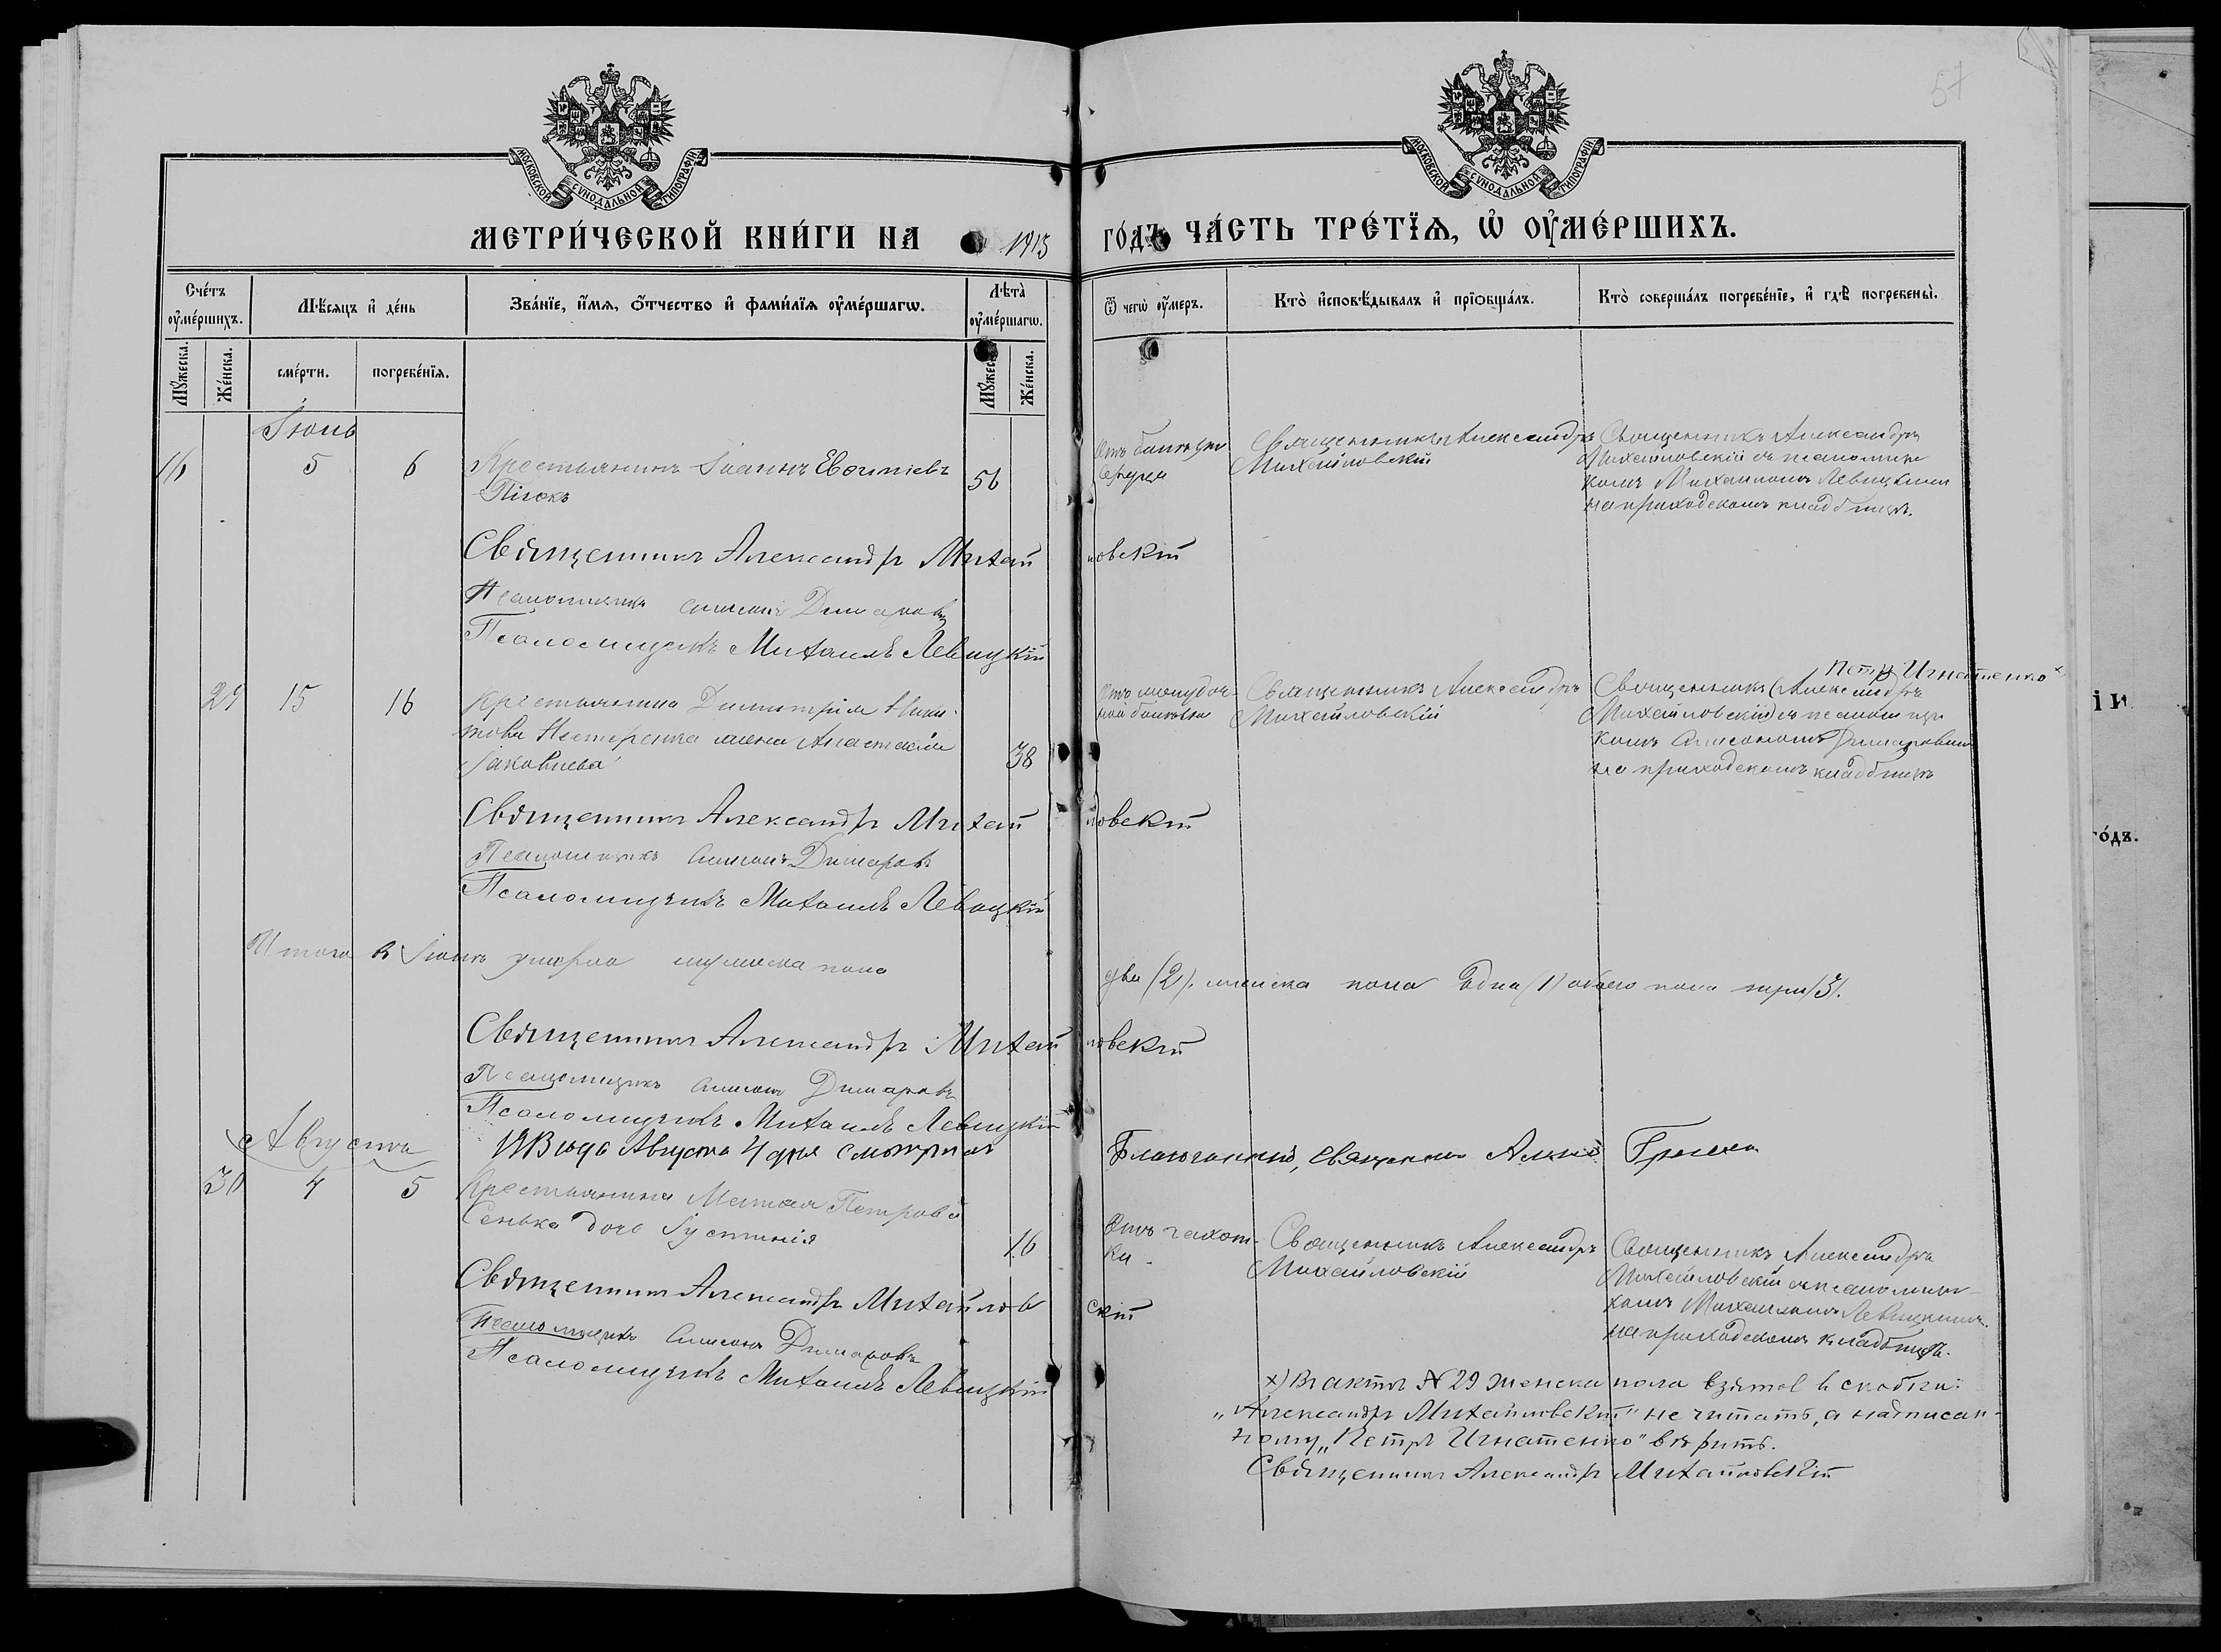 57
МОСКОВСКОЙ СѴНОДАЛЬНОЙ ТИПОГРАФІИ
МОСКОВСКОЙ СѴНОДАЛЬНОЙ ТИПОГРАФІИ
МЕТРИ́ЧЕСКОЙ КНИ́ГИ НА 1913 ГО́ДЪ ЧА́СТЬ ТРЕ́ТЇѦ, Ѡ҆ ОУ҆МЕ́РШИХЪ.
Сче́тъ оу҆ме́ршихъ.
Мѣ́сяцъ и҆ де́нь
Зва́нїе, и҆́мя, ѻ҆́тчество и҆ фами́лїя оу҆ме́ршагѡ.
Лѣта̀ оу҆ме́ршагѡ.
Ѿ чегѡ̀ оу҆́меръ.
Кто̀ и҆сповѣ́дывалъ и҆ прїѡбща́лъ.
Кто̀ соверша́лъ погребе́нїе, и҆ гдѣ̀ погребены̀.
Мꙋ́жеска.
Же́нска.
сме́рти.
погребе́нїя.
Мꙋ́жеск
Же́нска.
Іюль
16 5 6 Крестьянинъ Іоаннъ
56
Отъ
сердца
Священникъ Александръ
Михайловскій
Священникъ Александръ
Михайловскій съ псаломщи
комъ Михаиломъ Левицкимъ
на приходскомъ кладбищѣ.
Священникъ Александръ Михайловскій
Псаломщикъ Димаровъ
Псаломщикъ Михаилъ Левицкій
29 15 16 Крестьянина Димитрія Ники-
това Нестеренка жена Анастасія
Іаковлева
38
Отъ желудоч-
ной болѣзни
Священникъ Александръ
Михайловскій
Петръ Игнатенко х
Священникъ (Александръ
Михайловскій) съ псаломщи
комъ Димаровымъ
на приходскомъ кладбищѣ
Священникъ Александръ Михайловскій
Псаломщикъ Димаровъ
Псаломщикъ Михаилъ Левицкій
Итого въ Іюлѣ умерло мужеска пола два (2), женска пола одна (1) обоего пола три (3).
Священникъ Александръ Михайловскій
Псаломщикъ Димаровъ
Псаломщикъ Михаилъ Левицкій
1913 года Августа 4 дня смотрѣлъ Благочинный, Священникъ
Августъ
30 4 5 Крестьянина Матвея Петрова
Сенька дочь Іустинія
16
Отъ чахот-
ки
Священникъ Александръ
Михайловскій
Священникъ Александръ
Михайловскій съ псаломщи-
комъ Михаиломъ Левицкимъ
на приходскомъ кладбищѣ.
Священникъ Александръ Михайловскій
Псаломщикъ Димаровъ
Псаломщикъ Михаилъ Левицкій
х) Въ актѣ № 29 женска пола взятое въ скобки:
„Александръ Михайловскій" не читать, а надписан-
ному „Петръ Игнатенко" вѣрить.
Священникъ Александръ Михайловскій
ІИ
го́дъ.